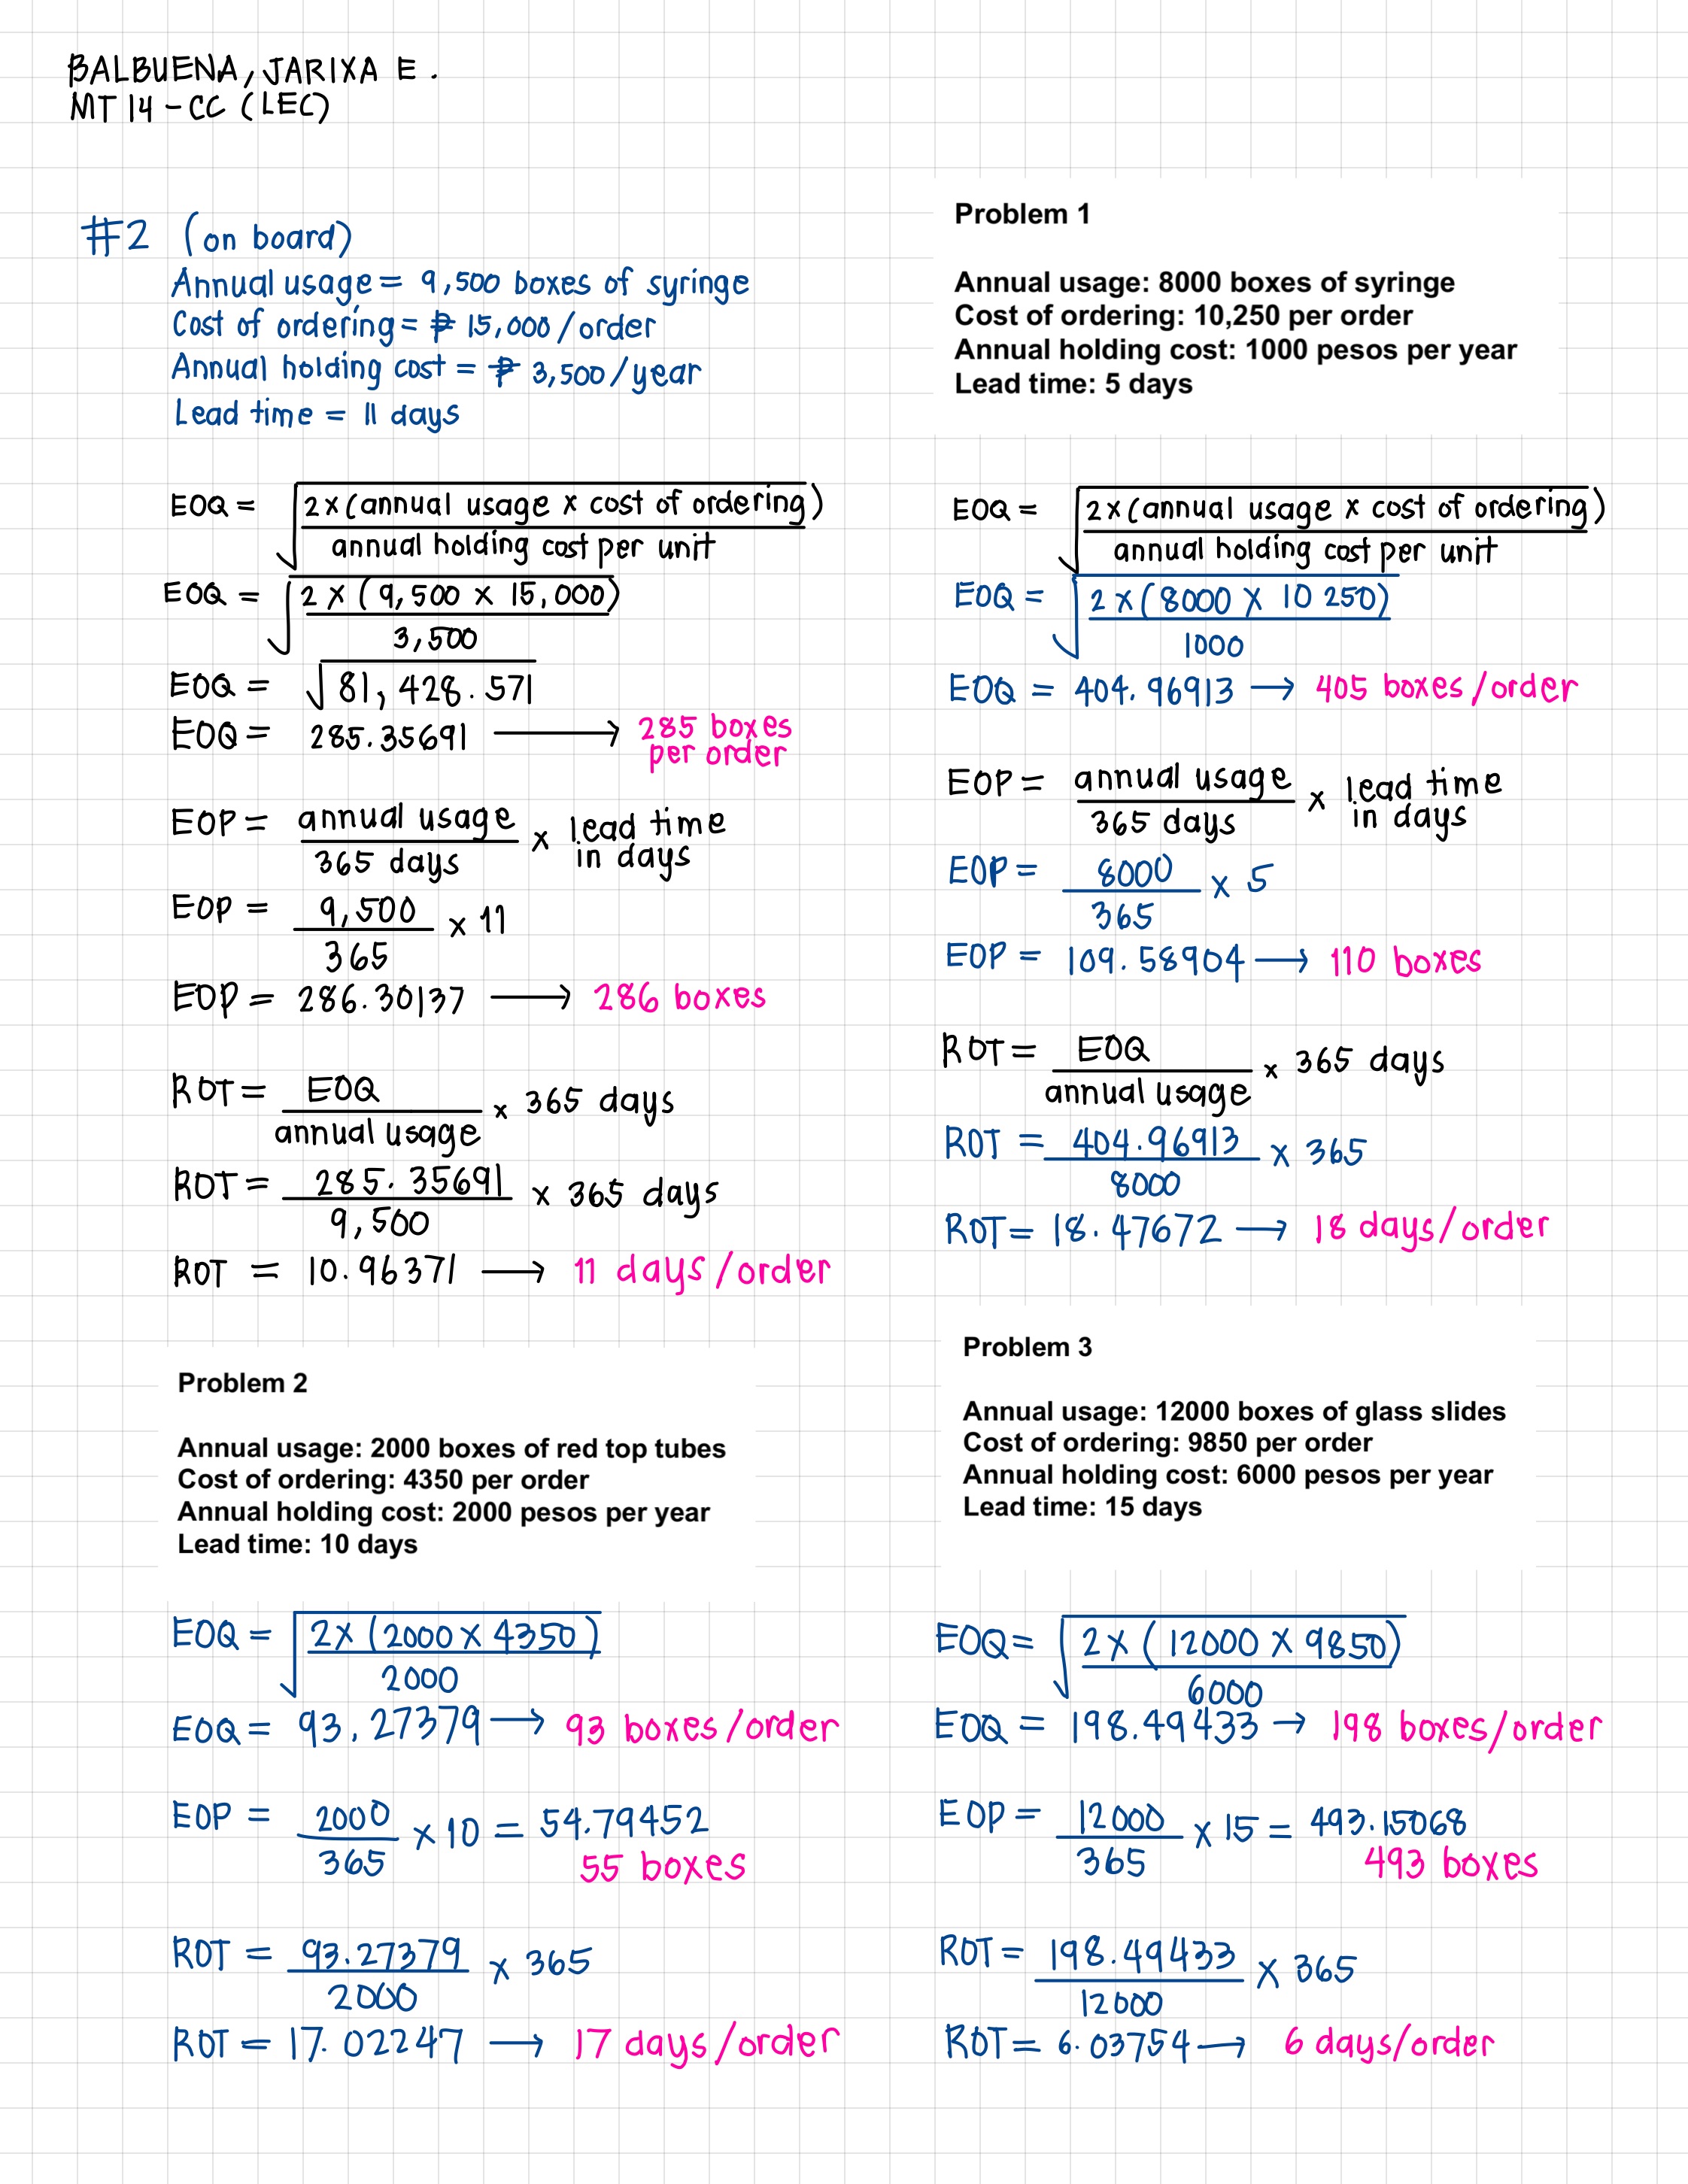 BALBUENA, JARIXA E.
MT 14 - CC (LEC)
#2 (on board)
Annual usage = 9,500 boxes of syringe
Cost of ordering = ₱ 15,000/order
Annual holding cost = ₱ 3,500/year
Lead time = 11 days
EOQ = √ 2 x (annual usage x cost of ordering)
annual holding cost per unit
EOQ = √ 2 x (9,500 x 15,000)
3,500
EOQ = √ 81,428.571
EOQ = 285.35691 → 285 boxes
per order
EOP = annual usage x lead time
365 days in days
EOP = 9,500 x 11
365
EOP = 286.30137 → 286 boxes
ROT = EOQ x 365 days
annual usage
ROT = 285.35691 x 365 days
9,500
ROT = 10.96371 → 11 days/order
Problem 1
Annual usage: 8000 boxes of syringe
Cost of ordering: 10,250 per order
Annual holding cost: 1000 pesos per year
Lead time: 5 days
EOQ = √ 2 x (annual usage x cost of ordering)
annual holding cost per unit
EOQ = √ 2 x (8000 x 10 250)
1000
EOQ = 404.96913 → 405 boxes/order
EOP = annual usage x lead time
365 days in days
EOP = 8000 x 5
365
EOP = 109.58904 → 110 boxes
ROT = EOQ x 365 days
annual usage
ROT = 404.96913 x 365
8000
ROT = 18.47672 → 18 days/order
Problem 2
Annual usage: 2000 boxes of red top tubes
Cost of ordering: 4350 per order
Annual holding cost: 2000 pesos per year
Lead time: 10 days
EOQ = √ 2 x (2000 x 4350)
2000
EOQ = 93.27379 → 93 boxes/order
EOP = 2000 x 10 = 54.79452
365 55 boxes
ROT = 93.27379 x 365
2000
ROT = 17.02247 → 17 days/order
Problem 3
Annual usage: 12000 boxes of glass slides
Cost of ordering: 9850 per order
Annual holding cost: 6000 pesos per year
Lead time: 15 days
EOQ = √ 2 x (12000 x 9850)
6000
EOQ = 198.49433 → 198 boxes/order
EOP = 12000 x 15 = 493.15068
365 493 boxes
ROT = 198.49433 x 365
12000
ROT = 6.03754 → 6 days/order